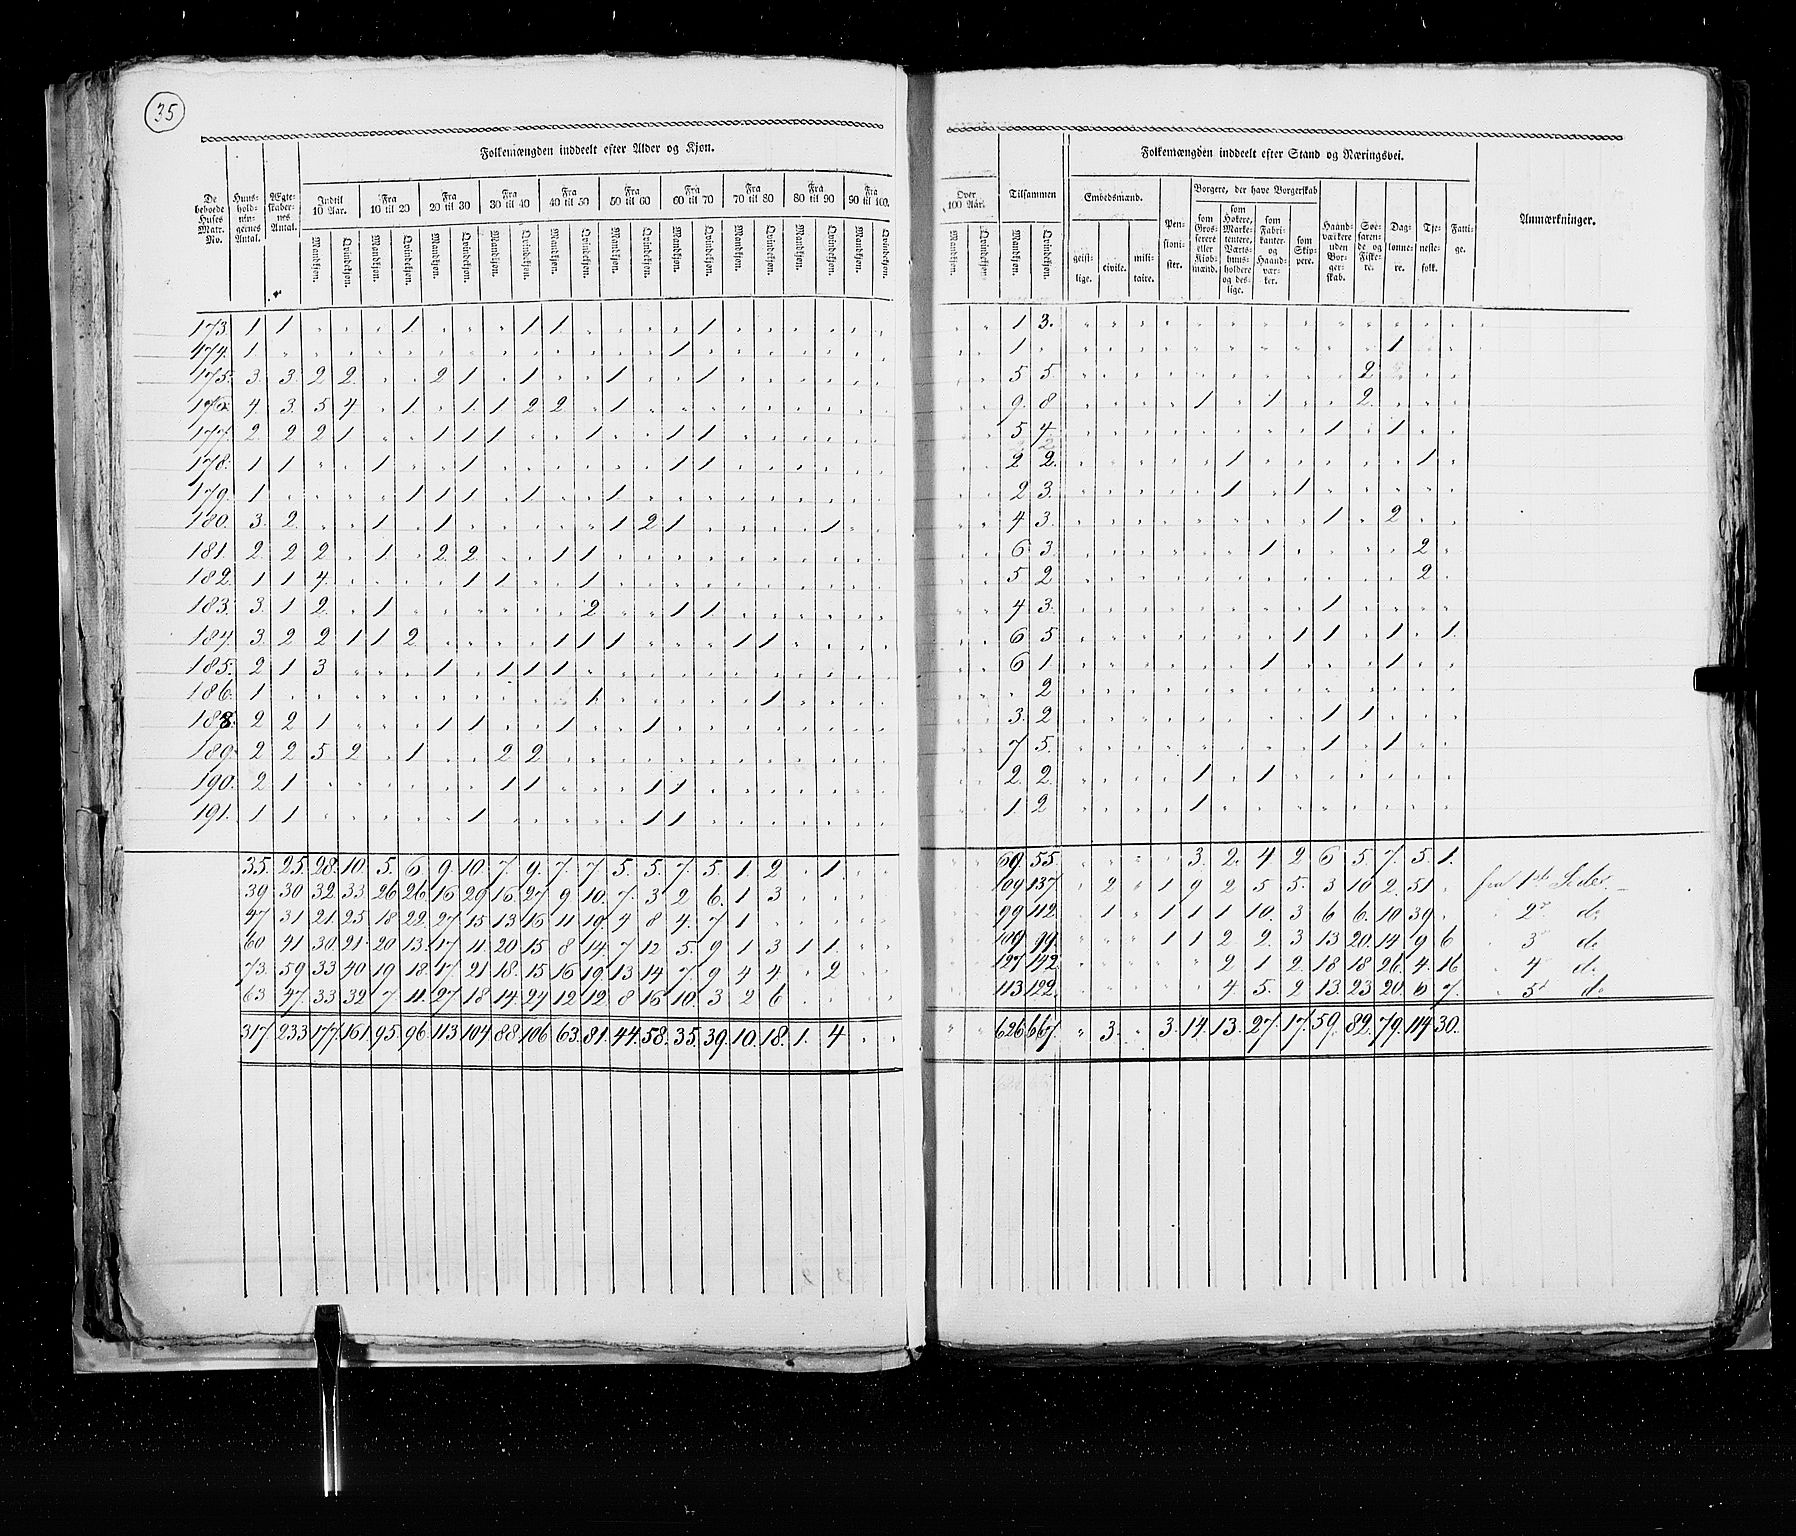 35
Folkemængden inddeelt efter Alder og Kjøn.
De beboede Huses Matr. No. | Huusholdningernes Antal. | Ægteskabernes Antal. | Indtil 10 Aar. | Fra 10 til 20 | Fra 20 til 30 | Fra 30 til 40 | Fra 40 til 50 | Fra 50 til 60 | Fra 60 til 70 | Fra 70 til 80 | Fra 80 til 90 | Fra 90 til 100.
Mandkjøn. Qvindekjøn. Mandkjøn. Qvindekjøn. Mandkjøn. Qvindekjøn. Mandkjøn. Qvindekjøn. Mandkjøn. Qvindekjøn. Mandkjøn. Qvindekjøn. Mandkjøn. Qvindekjøn. Mandkjøn. Qvindekjøn. Mandkjøn. Qvindekjøn. Mandkjøn. Qvindekjøn.
173. 1 1 " " " 1 " " " 1 1 " " " " 1 " " " " " "
174. 1 " " " " " " " " " " " " " 1 " " " " " " "
175. 3. 3. 2 2. " " 2 1 " 1 " " 1 " " 1 " " " " " "
176. 4. 3. 5 4 " 1 " 1 1 2 2 " 1 " " " " " " " " "
177. 2. 2 2 1 " " 1 1 1 " " 1 " " 1 1 " " " " " "
178. 1 1 " " 1 " " 1 " " " " " " 1 1 " " " " " "
179. 1 " " " " 1 1 1 " 1 " " 1 " " " " " " " " "
180. 3. 2 " " 1 " 1 " " " " " 1 2 1 " " " " 1 " "
181. 2 2 2 " 1 " 2 2 " " 1 1 " " " " " " " " " "
182. 1 1 4. " " " " 1 1 " " 1 " " " " " " " " " "
183. 3. 1 2 " 1 " " " " " " 2 " " 1 1 " " " " " "
184. 3. 2 2 1 1 2 " " " " 1 1 1 " " " 1 1 " " " "
185. 2 1 3 " " " 1 " 1 1 1 " " " " " " " " " " "
186. 1 " " " " " " " " " " 1 " " " " " 1 " " " "
188. 2 2 1 " " " 1 1 " " 1 " " 1 " " " " " " " "
189. 2 2 5 2 " 1 " " 2 2 " " " " " " " " " " " "
190. 2 1 " " " " " " 1 1 " " " 1 1 " " " " " " "
191. 1 1 " " " " " 1 " " " " " 1 1 " " " " " " "
35. 25. 28. 10. 5. 6 9. 10. 7. 9. 7. 7 5. 5. 7. 5. 1. 2 " 1. " "
39 30 32. 33. 26 26. 16 29 16. 27 9 10. 7. 3 2 6. 1 3
47 31 21. 25 18 22. 27 15 13 16 11 19. 4 8 4. 7 1
60 41 30. 21. 20 13. 17 11 20 15 8 14. 7 12 5. 9 1 3 1 1.
73. 59 33 40 19 18. 17 21 18. 15 16 19. 13 14 7 9 4 4. " 2
63 47. 33 32 7 11. 27 18 14. 24 12 12. 8 16 10. 3 2 6
317 233 177. 161. 95. 96. 113 104 88. 106 63. 81. 44. 58. 35. 39. 10. 18. 1. 4
Folkemængden inddeelt efter Stand og Næringsvei.
Over 100 Aar. | Tilsammen | Embedsmænd. | Pensionister. | Borgere, der have Borgerskab | Haandværkere uden Borgerskab. | Søefarende og Fiskere. | Daglønnere. | Tjenestefolk. | Fattige. | Anmærkninger.
Mandkjøn. Qvindekjøn. Mandkjøn. Qvindekjøn. geistlige. civile. militaire. | som Grosserere eller Kjøbmænd. | som Høkere, Marketentere, Værtshuusholdere og deslige. | som Fabrikanter og Haandværker. | som Skippere.
" " 1 3. " " " " " " " " " " " " "
" " 1 " " " " " " " " " " " 1 " "
" " 5 5. " " " " " " " " " 2 " " "
" " 9. 8 " " " " 1 " 1 " " 2. " " "
" " 5 4 " " " " " " " " 1 " 1 " "
" " 2 2. " " " " " 1 " " " " " 1 "
" " 2 3. " " " " " 1 " 1 " " " " "
" " 4 3. " " " " " " " " 1 " 2 " "
" " 6 3. " " " " " " 1 " " " " 2 "
" " 5 2 " " " " " " " " " " " 2 "
" " 4 3. " " " " " " " " 1 " " " "
" " 6 5 " " " " " " " 1 1 " 1 " 1.
" " 6 1. " " " " " " 1 " " " 1 " "
" " " 2 " " " " " " " " " " " " "
" " 3. 2 " " " " " " " " 1 1 " " "
" " 7 5. " " " " " " " " 1 " 1 " "
" " 2. 2. " " " " 1 " 1 " " " " " "
" " 1. 2 " " " " 1 " " " " " " " "
" " 69. 55. " " " " 3. 2. 4 2 6 5. 7. 5. 1.
" " 109 137. " 2 " 1 9 2 5 5. 3 10 2. 51 " fra 1ste Sider
" " 99 112. " 1 " 1 1 1 10. 3 6 6. 10 39. " " 2n do
" " 109. 99. " " " 1 1 2 2. 3 13 20. 14 9 6 " 3 do
" " 127 142. " " " " " 2 1 2. 18 18 26. 4. 16 " 4 do
" " 113. 122. " " " " " 4 5. 2 13. 23 20. 6 7. " 5t do
" " 626 667. " 3. " 3. 14. 13. 27. 17. 59. 89. 79. 114 30.